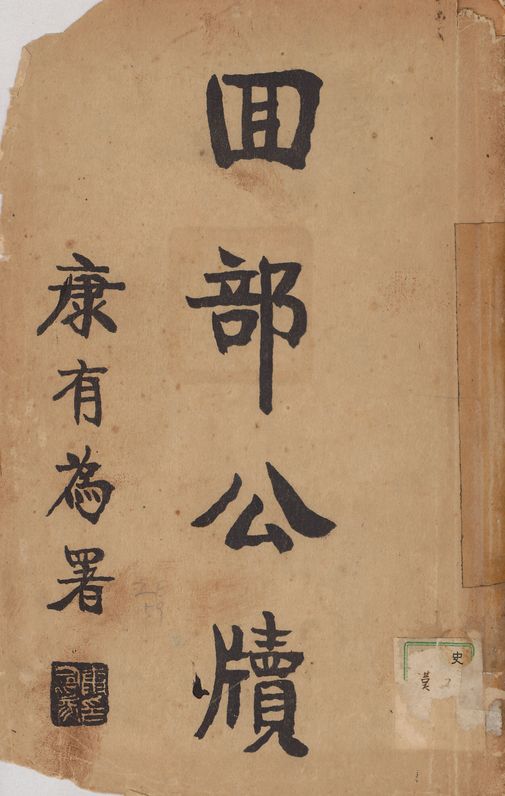 囬部公牘
康有為署
史